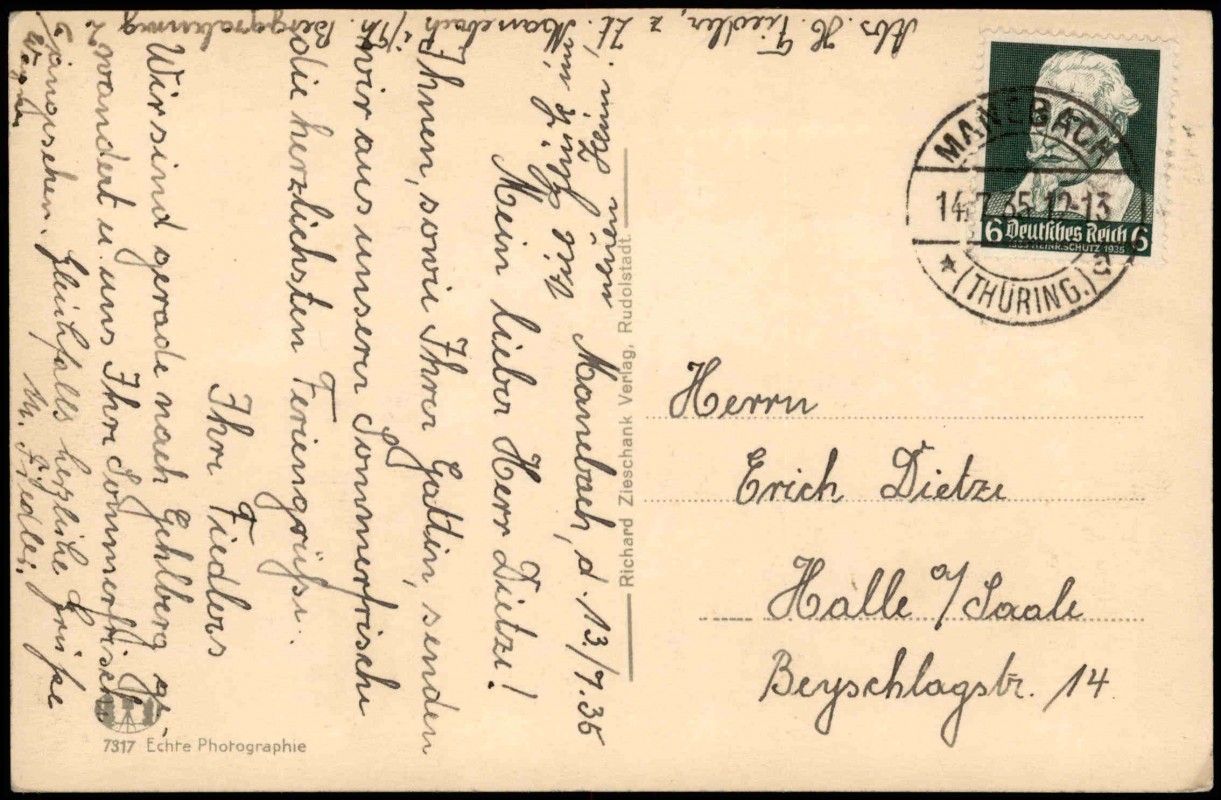 Abs. H. Fiedler, z. Zt. Manebach i/Th.
Manebach, d. 13./7.35
Mein lieber Herr Dietze!
Ihnen, sowie Ihrer Gattin, senden
wir aus unserer Sommerfrische
die herzlichsten Feriengrüsse.
Ihre Fiedlers
Wir sind gerade nach Gehlberg ge-
wandert u. uns Ihre Sommerfrische
angesehen. Gleichfalls herzliche Grüße
M. Fiedler
neuen Heim
MANEBACH
14.7.35.12-13
(THÜRING.)
a
6 Deutsches Reich 6
1585 HEINR. SCHÜTZ 1935
Herrn
Erich Dietze
Halle a/Saale
Beyschlagstr. 14
Richard Zieschank Verlag, Rudolstadt.
7317 Echte Photographie